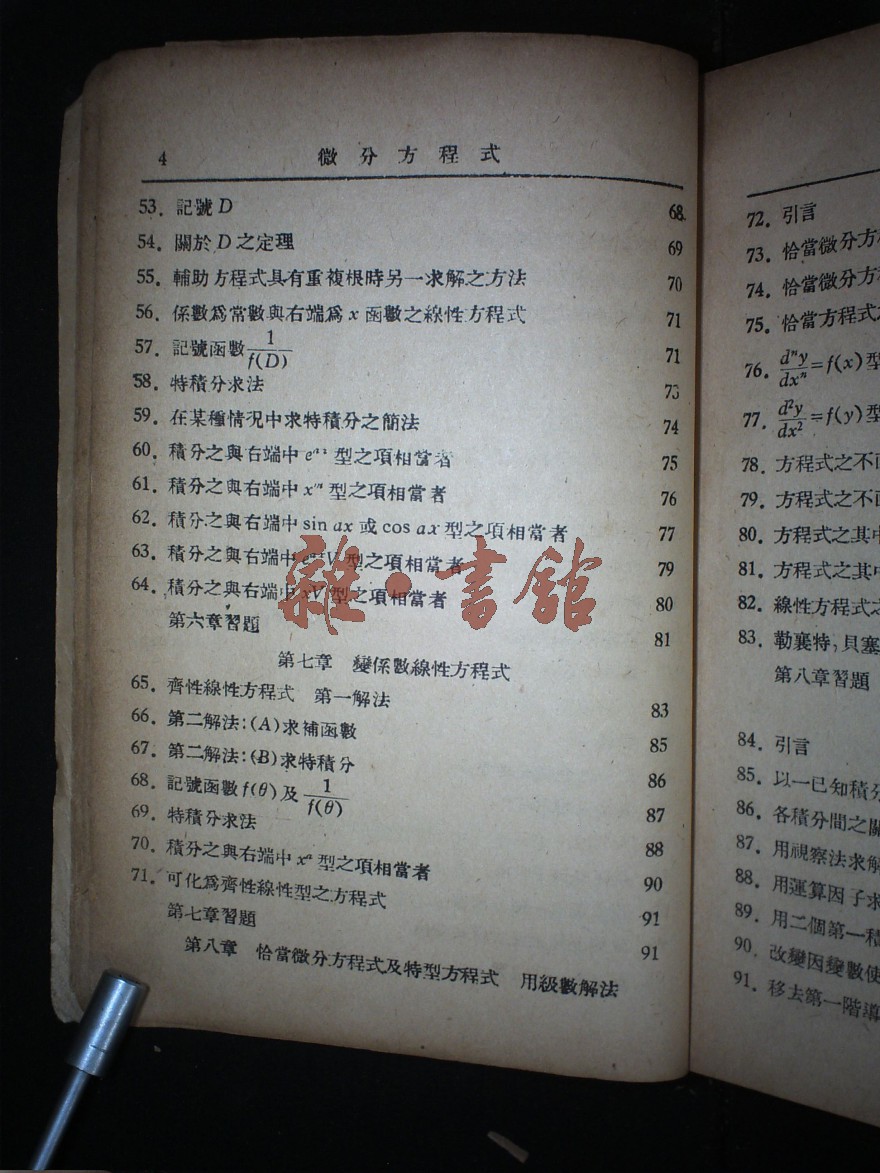 4 微分方程式
53. 記號 D 68
54. 關於 D 之定理 69
55. 輔助方程式具有重複根時另一求解之方法 70
56. 係數爲常數與右端爲 x 函數之線性方程式 71
57. 記號函數 1/f(D) 71
58. 特積分求法 73
59. 在某種情況中求特積分之簡法 74
60. 積分之與右端中 eᵃˣ 型之項相當者 75
61. 積分之與右端中 xᵐ 型之項相當者 76
62. 積分之與右端中 sin ax 或 cos ax 型之項相當者 77
63. 積分之與右端中 eᵃˣV 型之項相當者 79
64. 積分之與右端中 xV 型之項相當者 80
第六章習題 81
第七章 變係數線性方程式
65. 齊性線性方程式 第一解法 83
66. 第二解法:(A)求補函數 85
67. 第二解法:(B)求特積分 86
68. 記號函數 f(θ) 及 1/f(θ) 87
69. 特積分求法 88
70. 積分之與右端中 xᵃ 型之項相當者 90
71. 可化爲齊性線性型之方程式 91
第七章習題 91
第八章 恰當微分方程式及特型方程式 用級數解法
雜·書館
72. 引言
73. 恰當微分方
74. 恰當微分方
75. 恰當方程式
76. dⁿy/dxⁿ=f(x)型
77. d²y/dx²=f(y)型
78. 方程式之不
79. 方程式之不
80. 方程式之其中
81. 方程式之其中
82. 線性方程式之
83. 勒襄特,貝塞
第八章習題
84. 引言
85. 以一已知積分
86. 各積分間之關
87. 用視察法求解
88. 用運算因子求
89. 用二個第一積
90. 改變因變數使
91. 移去第一階導